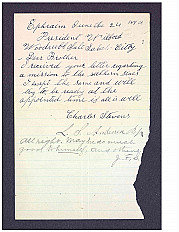 Ephraim June the 24 1890
President Woodruff
Woodruff Salt Lake City
Dear Brother
I received your letter regarding
a mission to the southern states
I except the same and will
try to be ready at the
appointed time if all is well
Charles Stevens
L. S. Anderson Bp
all right, may he do much
good to himself, and others
J. F. S.